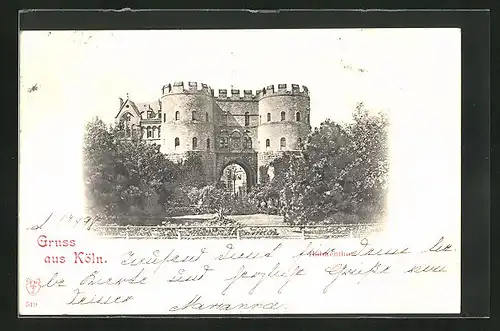 d 19 9/9
Gruss
aus Köln.
Hahnenthor
Tausend Dank für Deine lie-
be Karte und herzliche Grüße von
Deiner
Marianne
519